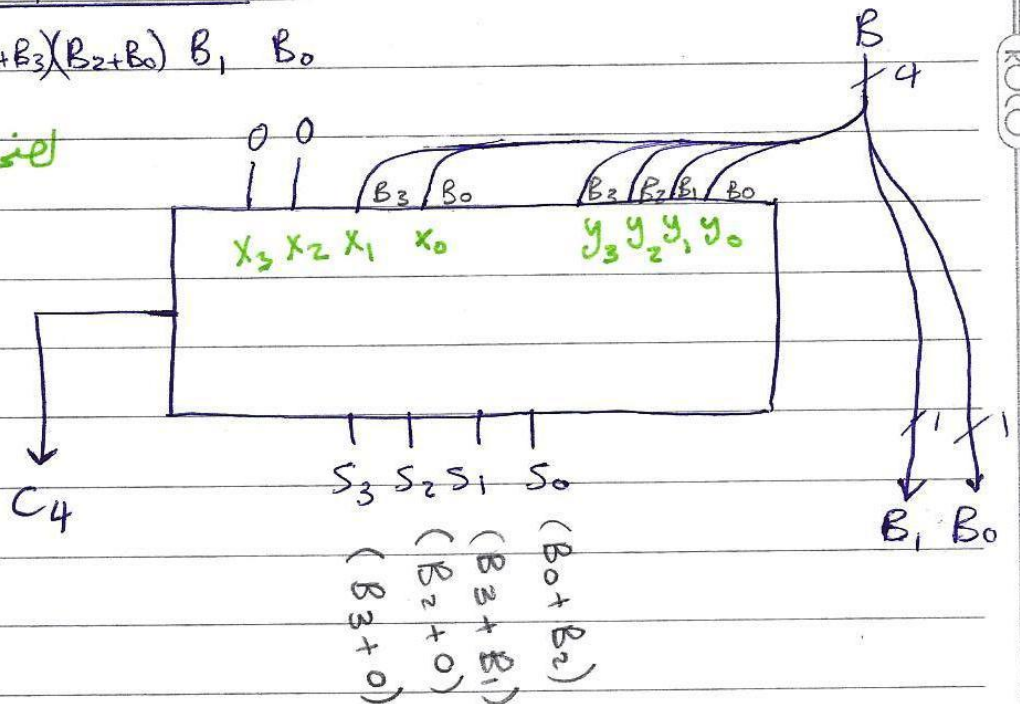 +B3)(B2+B0) B1 B0
B
4
0 0
B3 B0 B3 B2 B1 B0
x3 x2 x1 x0 y3 y2 y1 y0
C4
S3 S2 S1 S0
1 1
B1 B0
(B3+0) (B2+0) (B3+B1) (B0+B2)